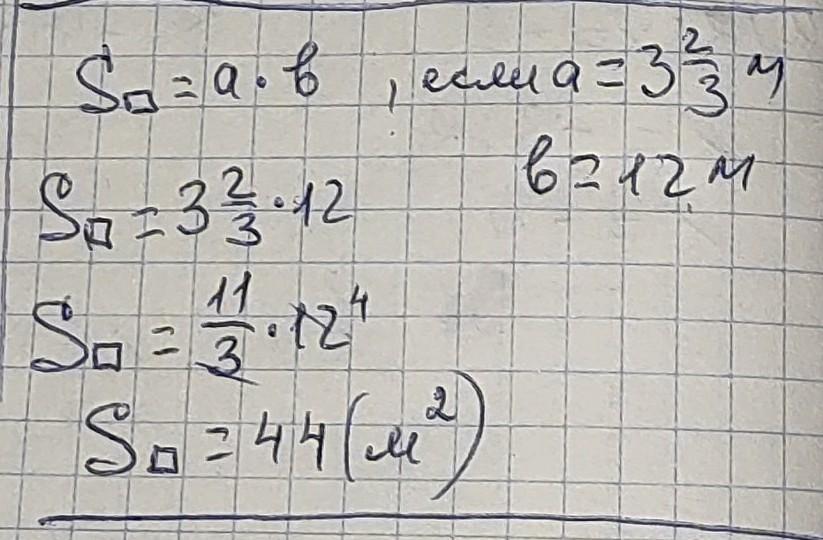 S□ = a · b , если a = 3 2/3 м
b = 12 м
S□ = 3 2/3 · 12
S□ = 11/3 · 12 ⁴
S□ = 44 (м²)